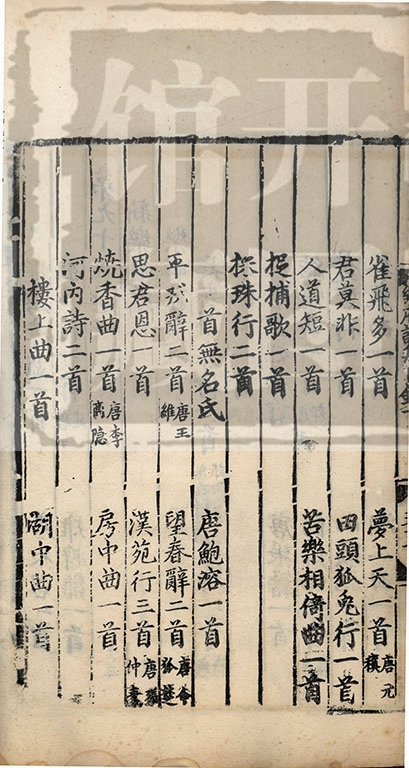 雀飛多一首 夢上天一首 唐元稹
君莫非一首 田頭狐兔行一首
人道短一首 苦樂相倚曲一首
捉捕歌一首
採珠行二首
一首無名氏 唐鮑溶一首
平戎辭二首 唐王維 望春辭二首 唐令狐楚
思君恩一首 漢苑行三首 唐張仲素
燒香曲一首 唐李商隱 房中曲一首
河內詩二首
樓上曲一首 湖中曲一首
开
馆